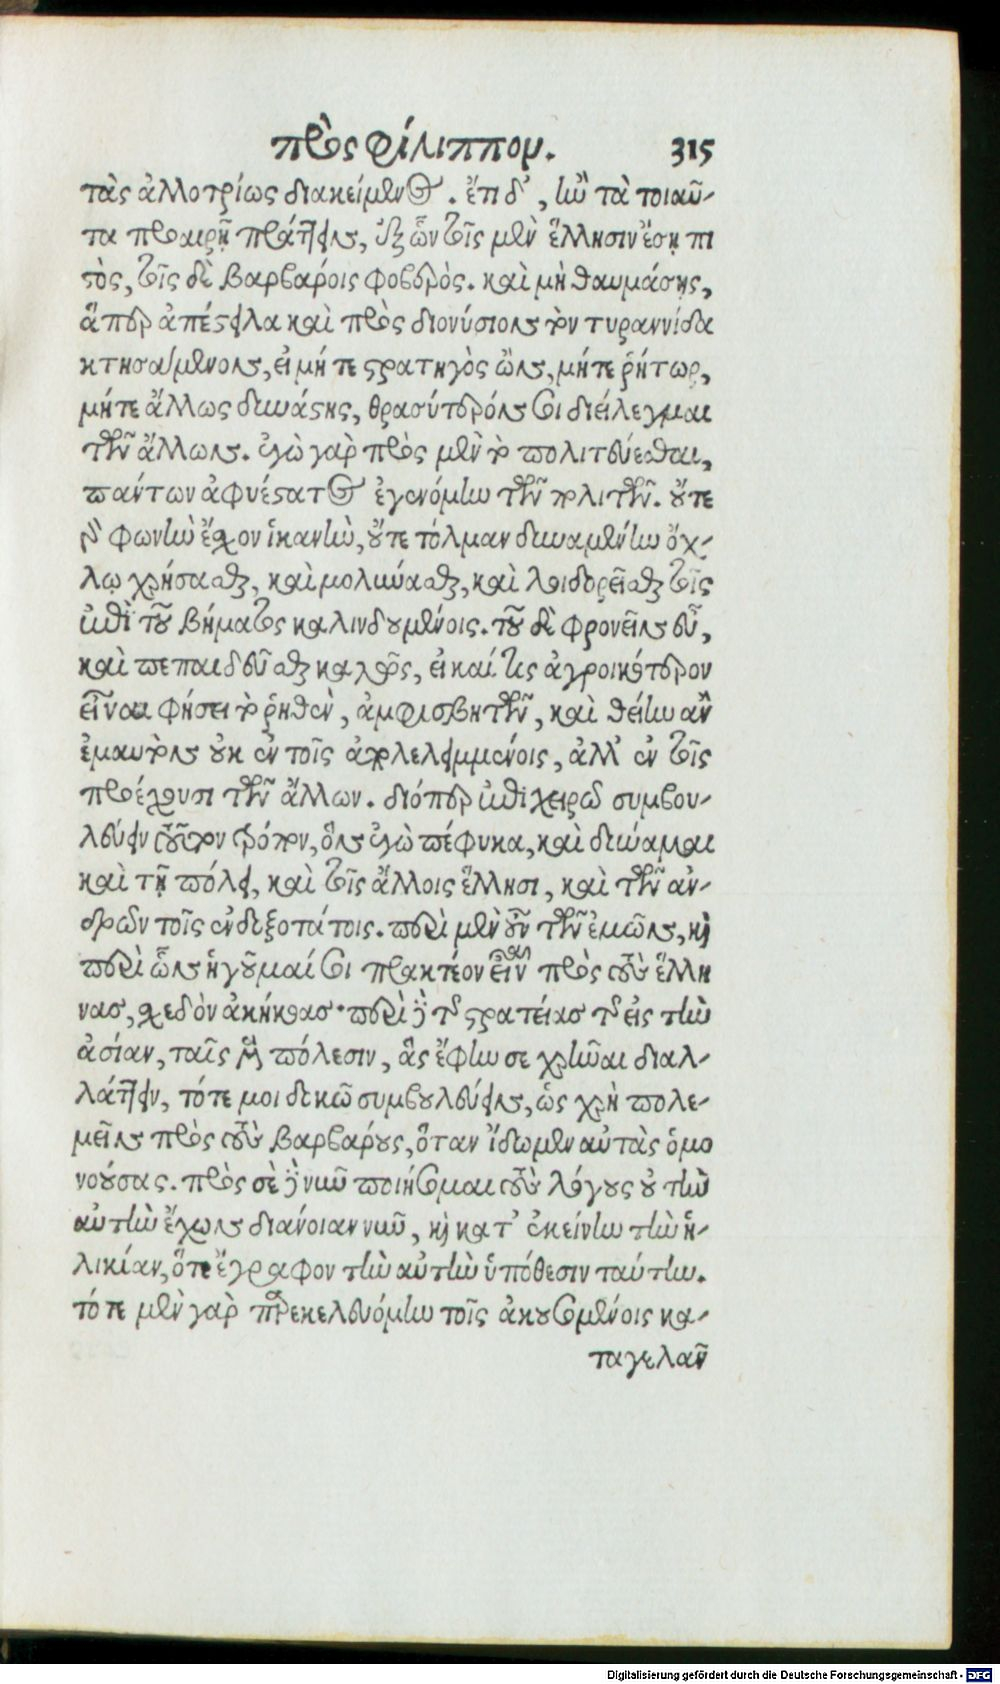 πρὸς φίλιππον. 315
τὰς ἀλλοτρίως διακείμενος. ἔτι δ', ἢν τὰ τοιαῦ-
τα προαιρῇ πράττειν, ἐξ ὧν τοῖς μὲν ἕλλησιν ἔσῃ πι
στὸς, τοῖς δὲ βαρβάροις φοβερὸς. καὶ μὴ θαυμάσῃς,
ἅπερ ἀπέστειλα καὶ πρὸς διονύσιον τὴν τυραννίδα
κτησάμενον, εἰ μήτε στρατηγὸς ὢν, μήτε ῥήτωρ,
μήτε ἄλλως δυνάστης, θρασύτερόν σοι διείλεγμαι
τῶν ἄλλων. ἐγὼ γὰρ πρὸς μὲν τὸ πολιτεύεσθαι,
πάντων ἀφυέστατος ἐγενόμην τῶν πολιτῶν. οὔτε
γὰρ φωνὴν ἔσχον ἱκανὴν, οὔτε τόλμαν δυναμένην ὄχ-
λῳ χρήσασθαι, καὶ μολύνασθαι, καὶ λοιδορεῖσθαι τοῖς
ἐπὶ τοῦ βήματος καλινδουμένοις. τοῦ δὲ φρονεῖν εὖ,
καὶ πεπαιδεῦσθαι καλῶς, εἰ καί τις ἀγροικότερον
εἶναι φήσει τὸ ῥηθὲν, ἀμφισβητῶ, καὶ θείην ἂν
ἐμαυτὸν οὐκ ἐν τοῖς ἀπολελειμμένοις, ἀλλ' ἐν τοῖς
προέχουσι τῶν ἄλλων. διόπερ ἐπιχειρῶ συμβου-
λεύειν τοῦτον τὸν τρόπον, ὃν ἐγὼ πέφυκα, καὶ δύναμαι
καὶ τῇ πόλει, καὶ τοῖς ἄλλοις ἕλλησι, καὶ τῶν ἀν-
δρῶν τοῖς ἐνδοξοτάτοις. περὶ μὲν οὖν τῶν ἐμῶν, καὶ
περὶ ὧν ἡγοῦμαί σοι πρακτέον εἶναι πρὸς τοὺς ἕλλη
νας, σχεδὸν ἀκήκοας. περὶ δὲ τῆς στρατείας τῆς εἰς τὴν
ἀσίαν, ταῖς μὲν πόλεσιν, ἃς ἔφην σε χρῆναι διαλ-
λάττειν, τότε μοι δοκῶ συμβουλεύειν, ὡς χρὴ πολε-
μεῖν πρὸς τοὺς βαρβάρους, ὅταν ἴδωμεν αὐτὰς ὁμο
νοούσας. πρὸς σὲ δὲ νῦν ποιήσομαι τοὺς λόγους οὐ τὴν
αὐτὴν ἔχων διάνοιαν νῦν, καὶ κατ' ἐκείνην τὴν ἡ-
λικίαν, ὅτε ἔγραφον τὴν αὐτὴν ὑπόθεσιν ταύτην.
τότε μὲν γὰρ παρεκελευόμην τοῖς ἀκουσομένοις κα-
ταγελᾶν
Digitalisierung gefördert durch die Deutsche Forschungsgemeinschaft - DFG